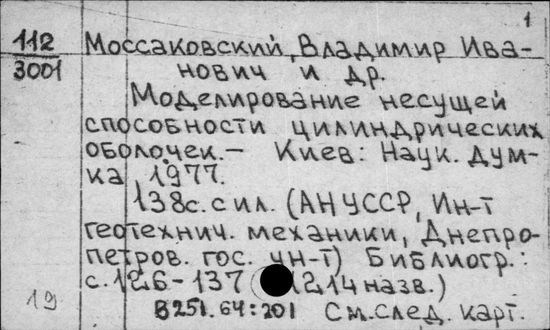 1
112
3001
Моссаковский, Владимир Ива-
нович и др.
Моделирование несущей
способности цилиндрических
оболочек.- Киев: Наук. дум-
ка, 1977.
138с. с ил. (АН УССР, Ин-т
геотехнич. механики, Днепро-
петров. гос. ун-т) Библиогр.:
с. 126-137 (214 назв.)
19
В251.64:201 См. след. карт.